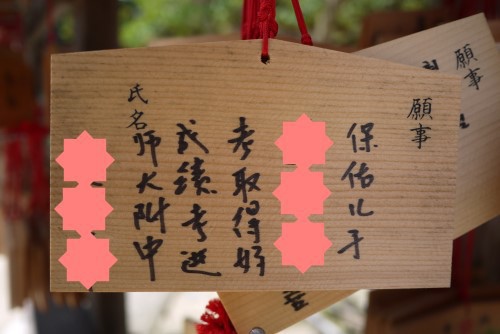 願事
保佑儿子
考取得好
成績考進
师大附中
氏名
願事